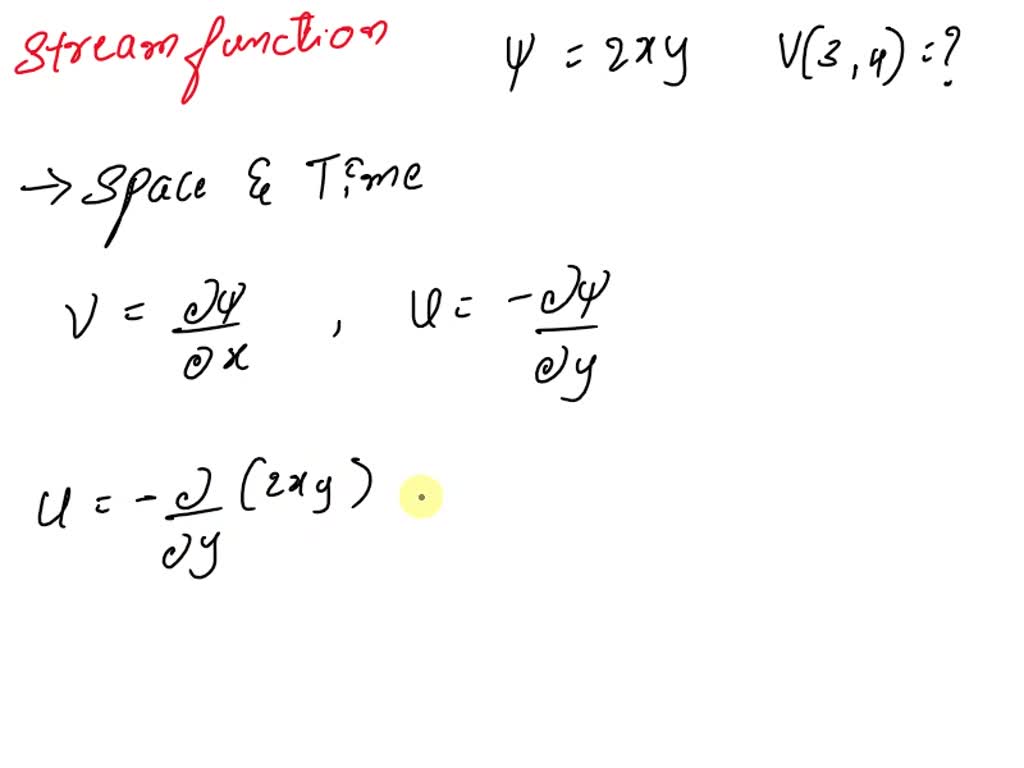 Stream function ψ = 2xy V(3,4) = ?
→ Space & Time
V = ∂ψ/∂x , U = -∂ψ/∂y
U = -∂/∂y (2xy)